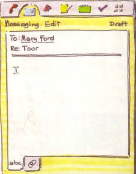 Messaging Edit Draft
To: Mary Ford
Re: Tour
abc